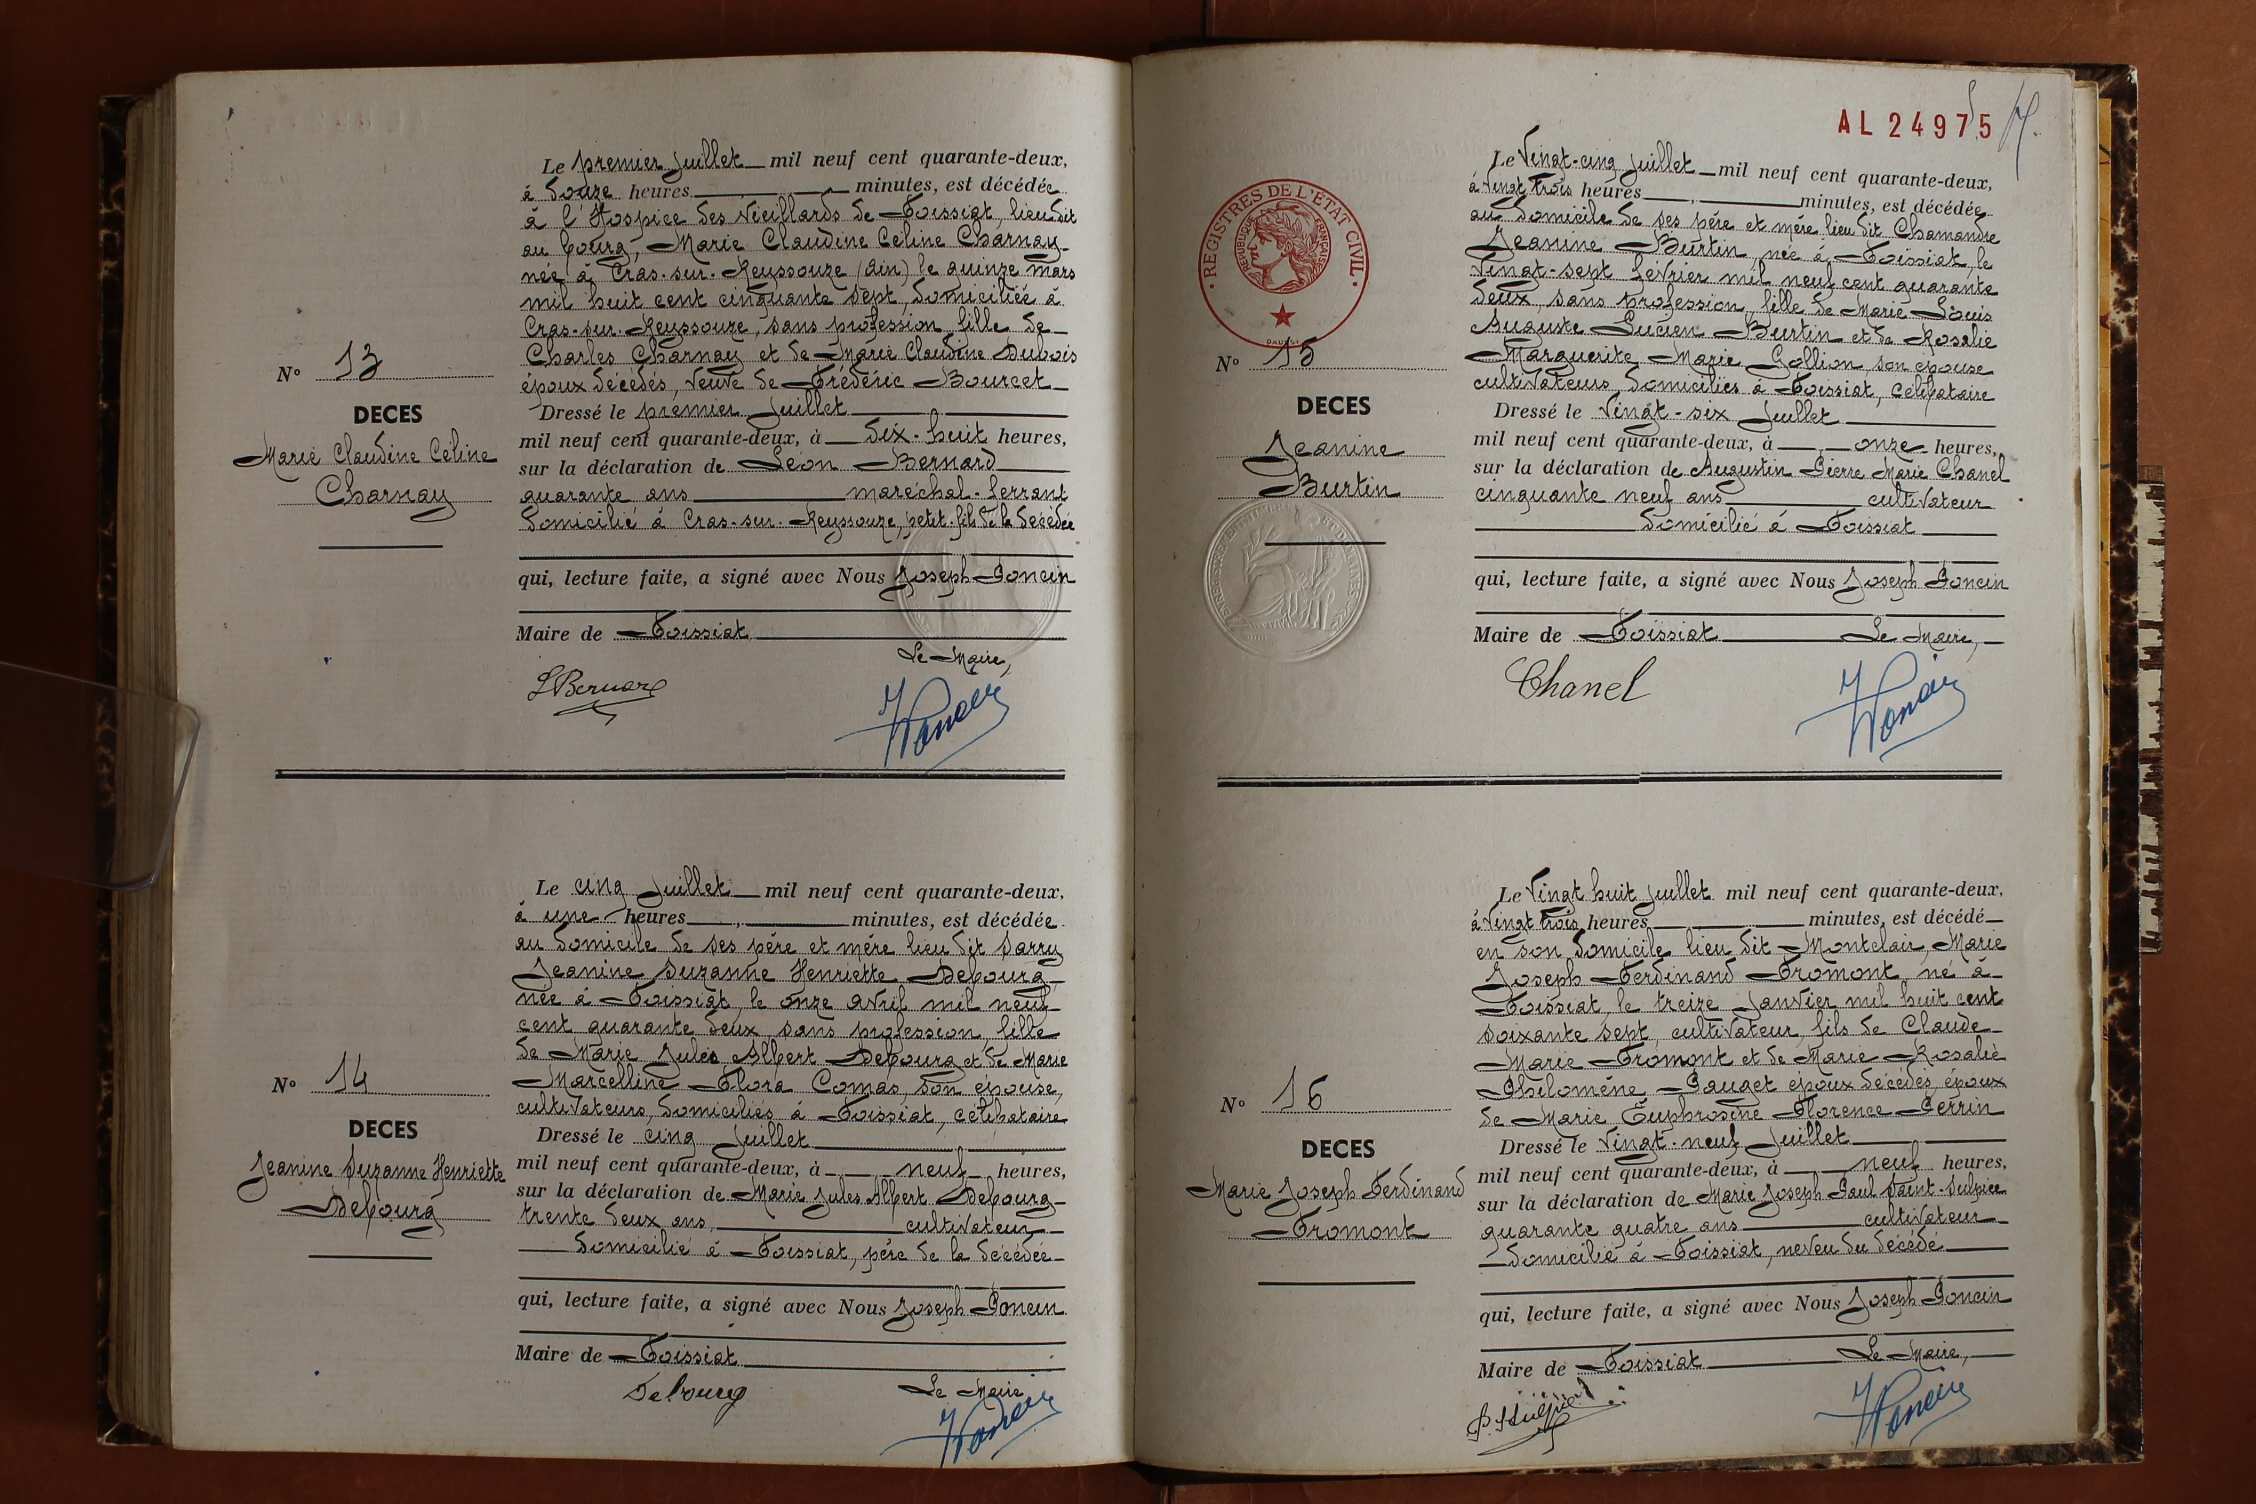 Le premier juillet mil neuf cent quarante-deux,
à douze heures minutes, est décédée
à l'Hospice des Vieillards de Foissiat, lieu dit
au bourg, Marie Claudine Céline Charnay
née à Cras-sur-Reyssouze (Ain) le quinze mars
mil huit cent cinquante sept, domiciliée à
Cras-sur-Reyssouze, sans profession, fille de
Charles Charnay et de Marie Claudine Dubois
époux décédés, veuve de Frédéric Bourcet
N° 13
DECES
Marie Claudine Céline
Charnay
Dressé le premier juillet
mil neuf cent quarante-deux, à dix-huit heures,
sur la déclaration de Léon Bernard
quarante ans maréchal-ferrant
domicilié à Cras-sur-Reyssouze, petit-fils de la décédée
qui, lecture faite, a signé avec Nous Joseph Poncin
Maire de Foissiat
Le Maire,
LBernard
JPoncin
Le cinq juillet mil neuf cent quarante-deux,
à une heures minutes, est décédée
au domicile de ses père et mère lieu dit Sarry
Jeanine Suzanne Henriette Debourg
née à Foissiat, le onze avril mil neuf
cent quarante deux, sans profession, fille
de Marie Jules Albert Debourg et de Marie
Marcelline Flora Comas, son épouse,
cultivateurs, domiciliés à Foissiat, célibataire
N° 14
DECES
Jeanine Suzanne Henriette
Debourg
Dressé le cinq juillet
mil neuf cent quarante-deux, à neuf heures,
sur la déclaration de Marie Jules Albert Debourg
trente deux ans, cultivateur
domicilié à Foissiat, père de la décédée
qui, lecture faite, a signé avec Nous Joseph Poncin
Maire de Foissiat
Le Maire
Debourg
JPoncin
AL 24975
REGISTRES DE L'ETAT CIVIL
REPUBLIQUE FRANÇAISE
Le Vingt-cinq juillet mil neuf cent quarante-deux,
à Vingt trois heures minutes, est décédée
au domicile de ses père et mère lieu dit Chamandre
Jeanine Burtin, née à Foissiat, le
Vingt-sept février mil neuf cent quarante
deux, sans profession, fille de Marie Louis
Auguste Lucien Burtin et de Rosalie
Marguerite Marie Gollion son épouse
cultivateurs, domiciliés à Foissiat, célibataire
N° 15
DECES
Jeanine
Burtin
Dressé le Vingt-six juillet
mil neuf cent quarante-deux, à onze heures,
sur la déclaration de Augustin Pierre Marie Chanel
cinquante neuf ans cultivateur
domicilié à Foissiat
qui, lecture faite, a signé avec Nous Joseph Poncin
Maire de Foissiat Le Maire,
Chanel
JPoncin
Le Vingt huit juillet mil neuf cent quarante-deux,
à Vingt trois heures minutes, est décédé
en son domicile lieu dit Montclair, Marie
Joseph Ferdinand Fromont, né à
Foissiat, le treize janvier mil huit cent
soixante sept, cultivateur, fils de Claude
Marie Fromont et de Marie Rosalie
Philomène Pauget époux décédés, époux
de Marie Euphrosine Florence Perrin
N° 16
DECES
Marie Joseph Ferdinand
Fromont
Dressé le Vingt-neuf juillet
mil neuf cent quarante-deux, à neuf heures,
sur la déclaration de Marie Joseph Paul Saint-Sulpice
quarante quatre ans cultivateur
domicilié à Foissiat, neveu du décédé
qui, lecture faite, a signé avec Nous Joseph Poncin
Maire de Foissiat Le Maire,
JPoncin